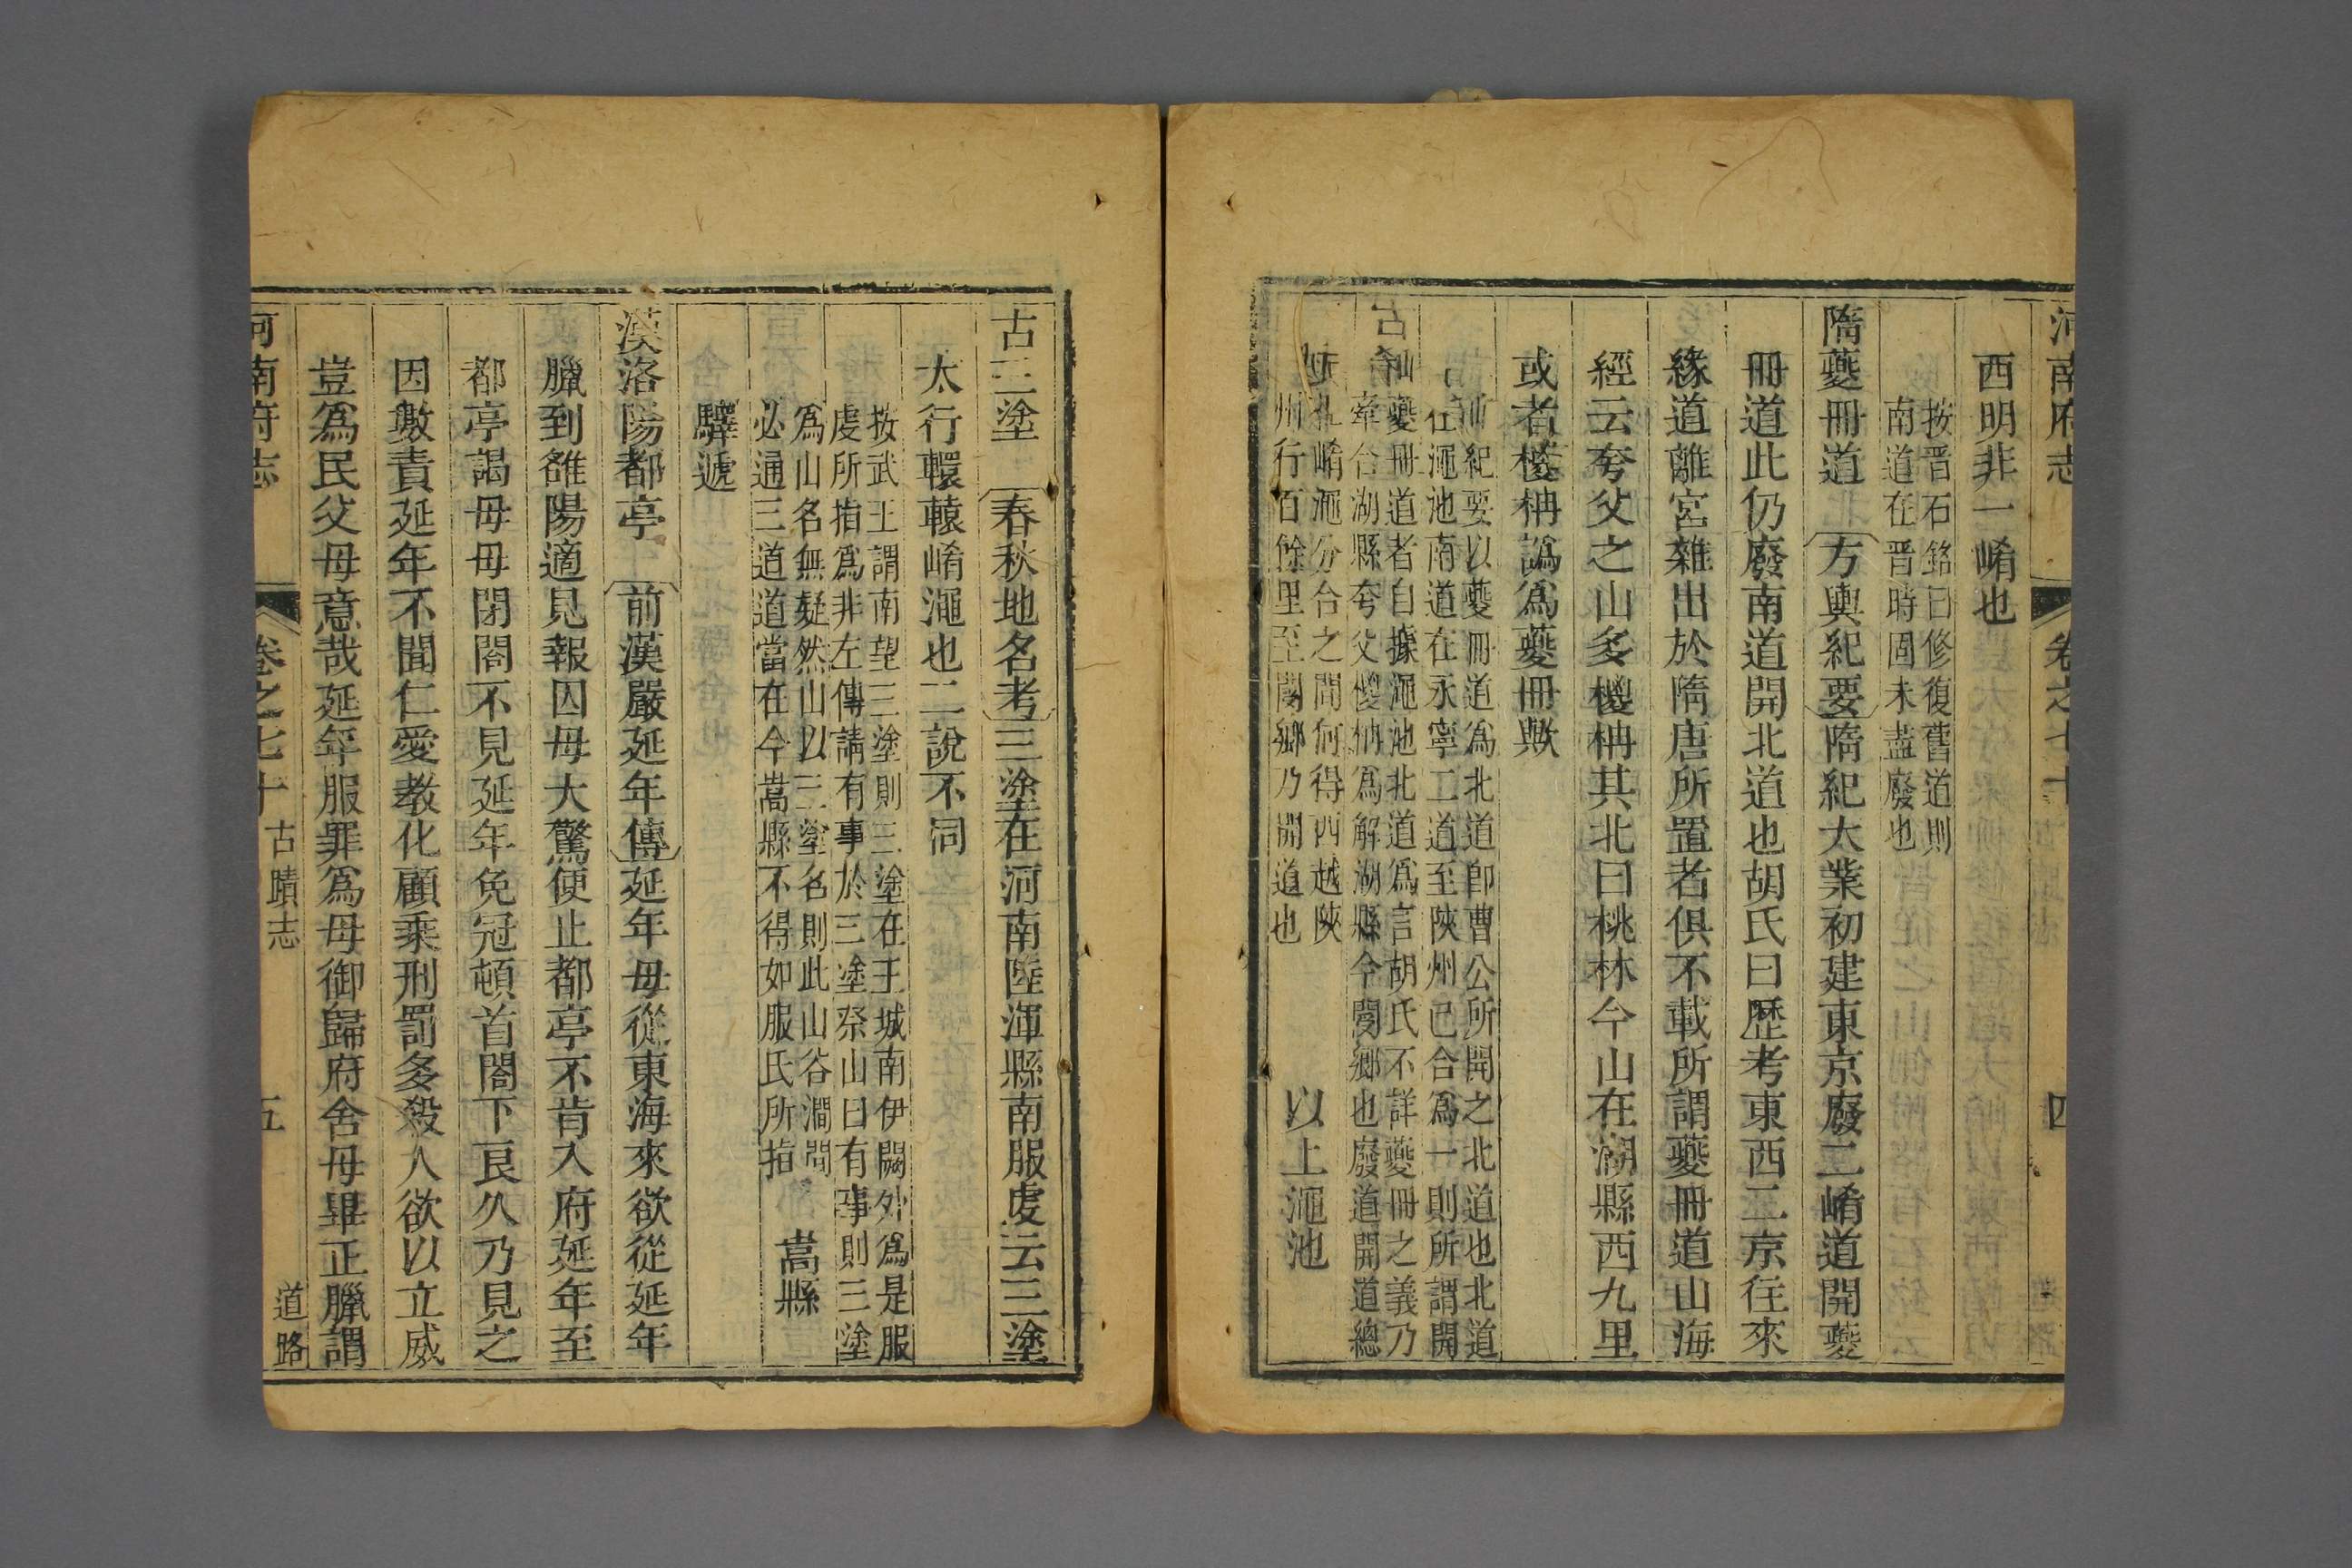 河南府志 卷之七十 四
西明非一崤也
按晋石銘曰修復舊道則
南道在晋時固未盡廢也
隋薆冊道 方輿紀要隋紀大業初建東京廢二崤道開薆
冊道此仍廢南道開北道也胡氏曰歷考東西二京往來
緣道離宮雜出於隋唐所置者俱不載所謂薆冊道山海
經云夸父之山多㯶枏其北曰桃林今山在湖縣西九里
或者㯶枏譌爲薆冊歟
紀要以薆冊道爲北道即曹公所開之北道也北道
在澠池南道在永寧二道至陝州已合爲一則所謂開
薆冊道者自據澠池北道爲言胡氏不詳薆冊之義乃
牽合湖縣夸父㯶枏爲解湖縣今閿鄉也廢道開道總
崤澠分合之間何得西越陝
州行百餘里至閿鄉乃開道也
以上澠池
古三塗 春秋地名考三塗在河南陸渾縣南服虔云三塗
太行轘轅崤澠也二說不同
按武王謂南望三塗則三塗在王城南伊闕外爲是服
虔所指爲非左傳請有事於三塗祭山曰有事則三塗
爲山名無疑然山以三塗名則此山谷澗間
必通三道道當在今嵩縣不得如服氏所指
嵩縣
驛遞
漢洛陽都亭 前漢嚴延年傳延年母從東海來欲從延年
臘到雒陽適見報囚母大驚便止都亭不肯入府延年至
都亭謁母母閉閤不見延年免冠頓首閤下良久乃見之
因數責延年不聞仁愛教化顧乘刑罰多殺人欲以立威
豈爲民父母意哉延年服罪爲母御歸府舍母畢正臘謂
河南府志 卷之七十 古蹟志 五 道路